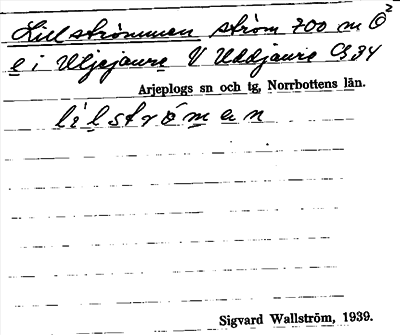 Lillströmmen ström 700 m Ö
e i Uljejaure V Uddjaure Cg 34
Arjeplogs sn och tg, Norrbottens län.
lilströmen
Sigvard Wallström, 1939.